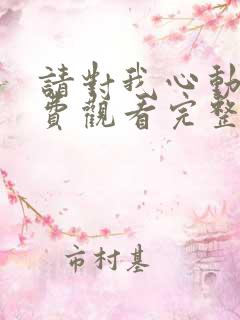 請對我心動
費觀看完整
市村基